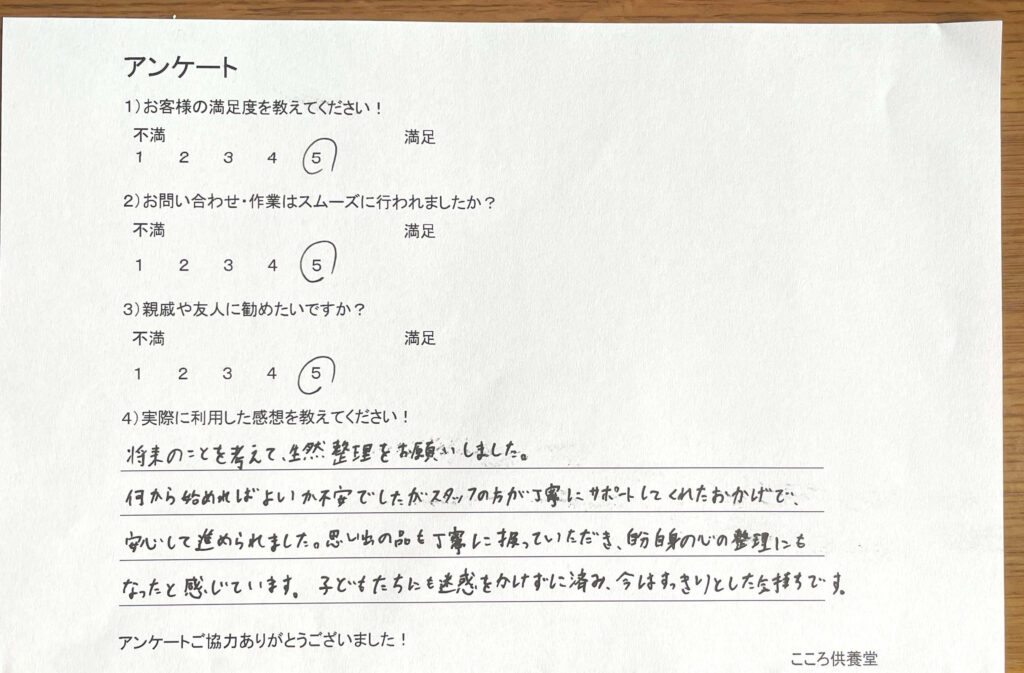 アンケート
1）お客様の満足度を教えてください！
不満 満足
1 2 3 4 5
2）お問い合わせ・作業はスムーズに行われましたか？
不満 満足
1 2 3 4 5
3）親戚や友人に勧めたいですか？
不満 満足
1 2 3 4 5
4）実際に利用した感想を教えてください！
将来のことを考えて、生然整理をお願いしました。
何から始めればよいか不安でしたがスタッフの方が丁寧にサポートしてくれたおかげで、
安心して進められました。思い出の品も丁寧に扱っていただき、自分自身の心の整理にも
なったと感じています。子どもたちにも迷惑をかけずに済み、今はすっきりとした気持ちです。
アンケートご協力ありがとうございました！
こころ供養堂